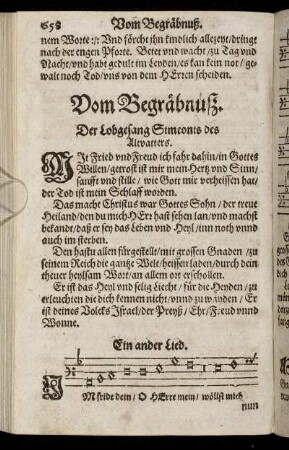 658 Vom Begräbnuß.
nem Worte :/: Vnd förcht jhn kindlich allezeyt/dringt
nach der engen Pforte. Betet vnd wacht/zu Tag vnd
Nacht/vnd habt gedult im Leyden/es kan kein not/ge-
walt noch Tod/vns von dem HErren scheiden.
Vom Begräbnuß.
Der Lobgesang Simeonis des
Altvatters.
MIt Fried vnd Freud ich fahr dahin/in Gottes
Willen/getrost ist mir mein Hertz vnd Sinn/
sanfft vnd stille/wie Gott mir verheissen hat/
der Tod ist mein Schlaff worden.
Das macht Christus war Gottes Sohn/der trewe
Heiland/den du mich HErr hast sehen lan/vnd machst
bekandt/daß er sey das Leben vnd Heyl/inn noth vnnd
auch im sterben.
Den hastu allen fürgestellt/mit grossen Gnaden/zu
seinem Reich die gantze Welt/heissen laden/durch dein
thewer heylsam Wort/an allem ort erschollen.
Er ist das Heyl vnd selig Liecht/für die Heyden/zu
erleuchten die dich kennen nicht/vnnd zu wäyden/Er
ist deines Volcks Israel/der Preyß/Ehr/Freud vnnd
Wonne.
Ein ander Lied.
IM fride dein/O HErre mein/wöllst mich
nun